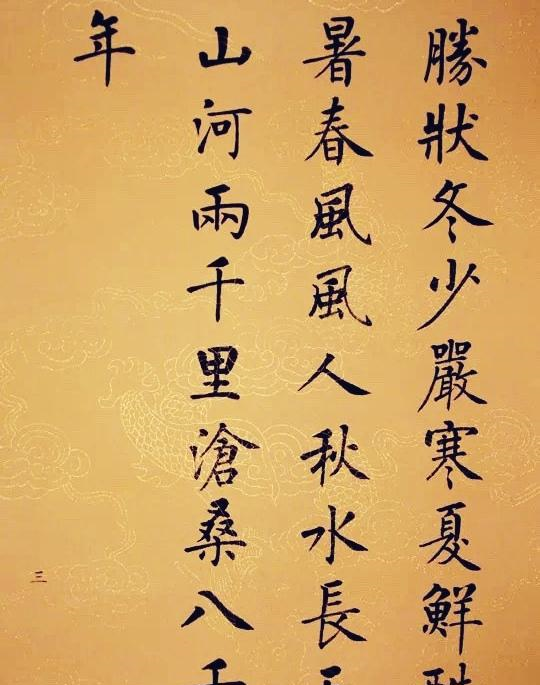 勝狀冬少嚴寒夏鮮
暑春風風人秋水長
山河兩千里滄桑八千
年
三